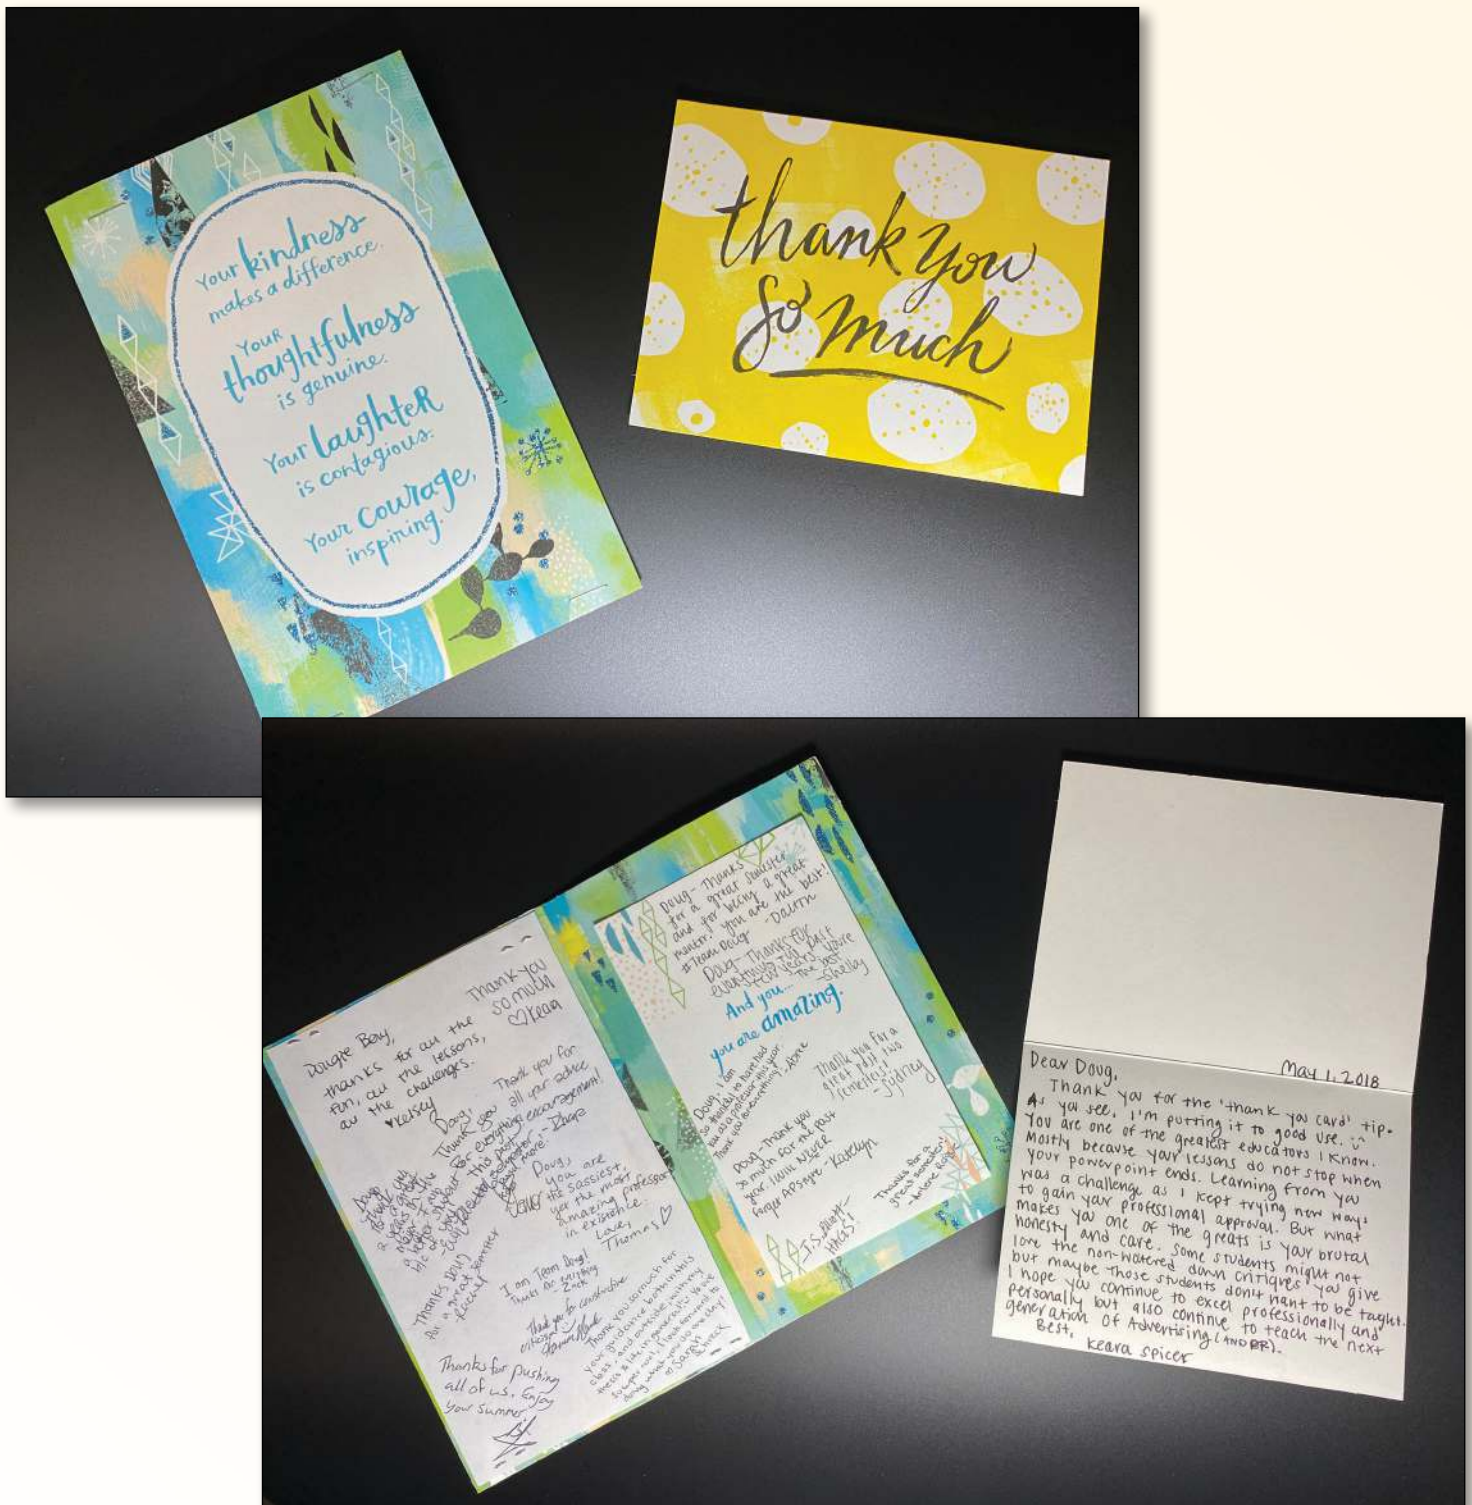 Your kindness
makes a difference.
Your
thoughtfulness
is genuine.
Your laughter
is contagious.
Your courage,
inspiring.
thank you
so much
Thank you
so much
♡ Keara
thanks for all the
fun, all the lessons,
all the challenges.
♥ Kelsey
Doug,
Thank you for
all your advice
Doug,
you are
the sassiest,
yet the most
amazing professor
in existence.
Love,
Thomas ♡
I am Team Doug!
Thanks for everything
- Zack
Thanks Doug
for a great semester
Thank you for constructive
Thank you so much for
your guidance both in this
class, and outside with my
Thanks for pushing
all of us. Enjoy
your summer
Doug - Thanks
for a great semester
and for being a great
mentor! You are the best!
#TeamDoug - Dalton
Doug - Thanks for
everything the past
years! You're
the best
- Shelby
And you...
you are amazing.
Doug, I am
so thankful to have had
you as a professor this year.
Thank you for everything!
Thank you for a
great past two
semesters!
- Sydney
Doug - Thank you
so much for the past
year. I will NEVER
forget AP style - Katelyn
Thanks for a
great semester!
HAGS!
May 1, 2018
Dear Doug,
Thank you for the 'thank you card' tip.
As you see, I'm putting it to good use.
You are one of the greatest educators I know.
Mostly because your lessons do not stop when
your powerpoint ends. Learning from you
was a challenge as I kept trying new ways
to gain your professional approval. But what
makes you one of the greats is your brutal
honesty and care. Some students might not
love the non-watered down critiques you give
but maybe those students don't want to be taught.
I hope you continue to excel professionally and
personally but also continue to teach the next
generation of Advertising (AND PR).
Best,
Keara Spicer